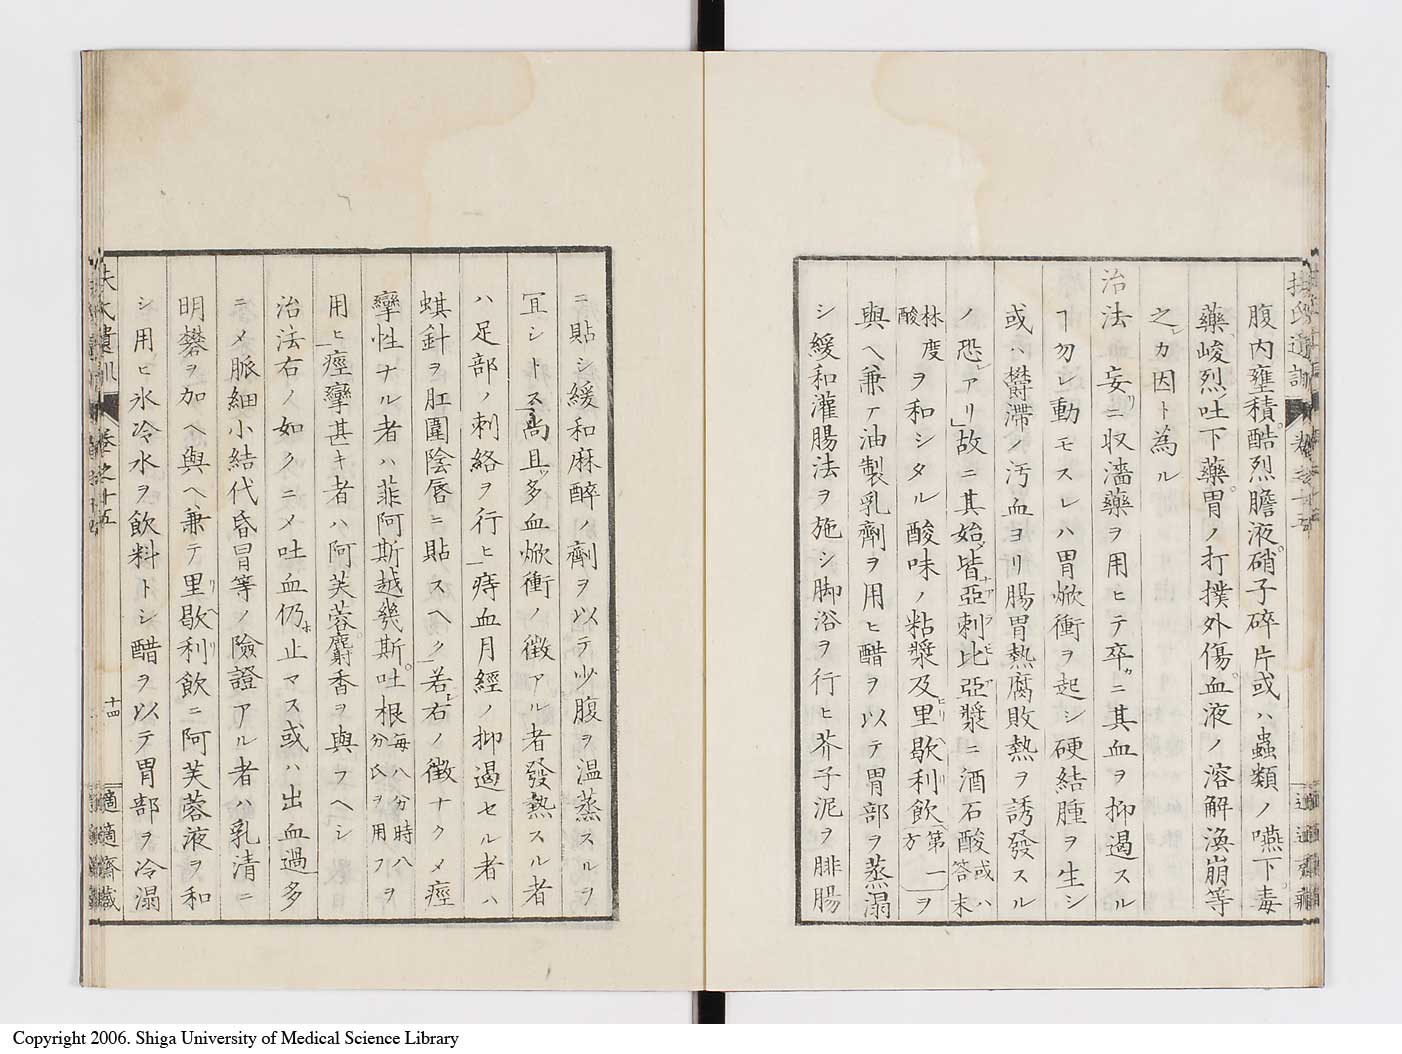 腹内壅積。酷烈膽液。硝子碎片或ハ蟲類ノ嚥下。毒
藥。峻烈吐下藥。胃ノ打撲外傷。血液ノ溶解渙崩等
之レカ因ト為ル
治法妄リニ収濇藥ヲ用ヒテ卒ニ其血ヲ抑遏スル
ヿ勿レ動モスレハ胃焮衝ヲ起シ硬結腫ヲ生シ
或ハ欝滯ノ汚血ヨリ腸胃熱腐敗熱ヲ誘發スル
ノ恐レアリ」故ニ其始メ皆亞刺比亞漿ニ酒石酸或ハ答末
林度酸ヲ和シタル酸味ノ粘漿及里歇利飲第一方ヲ
與ヘ兼テ油製乳劑ヲ用ヒ醋ヲ以テ胃部ヲ蒸溻
シ緩和灌腸法ヲ施シ脚浴ヲ行ヒ芥子泥ヲ腓腸
ニ貼シ緩和麻醉ノ劑ヲ以テ少腹ヲ温蒸スルヲ
冝シトス」尚且ツ多血焮衝ノ徴アル者發熱スル者
ハ足部ノ刺絡ヲ行ヒ」痔血月經ノ抑遏セル者ハ
蜞針ヲ肛圍陰唇ニ貼スヘク」若シ右ノ徴ナクメ痙
攣性ナル者ハ菲阿斯越幾斯。吐根毎八分時八分氏ヲ用フヲ
用ヒ」痙攣甚キ者ハ阿芙蓉。麝香ヲ與フヘシ
治法右ノ如クニメ吐血仍ホ止マス或ハ出血過多
ニメ脈細小結代昏冒等ノ險證アル者ハ乳清ニ
明礬ヲ加ヘ與ヘ兼テ里歇利飲ニ阿芙蓉液ヲ和
シ用ヒ氷冷水ヲ飲料トシ醋ヲ以テ胃部ヲ冷溻
卷之十五
十四
適適齋藏
Copyright 2006. Shiga University of Medical Science Library